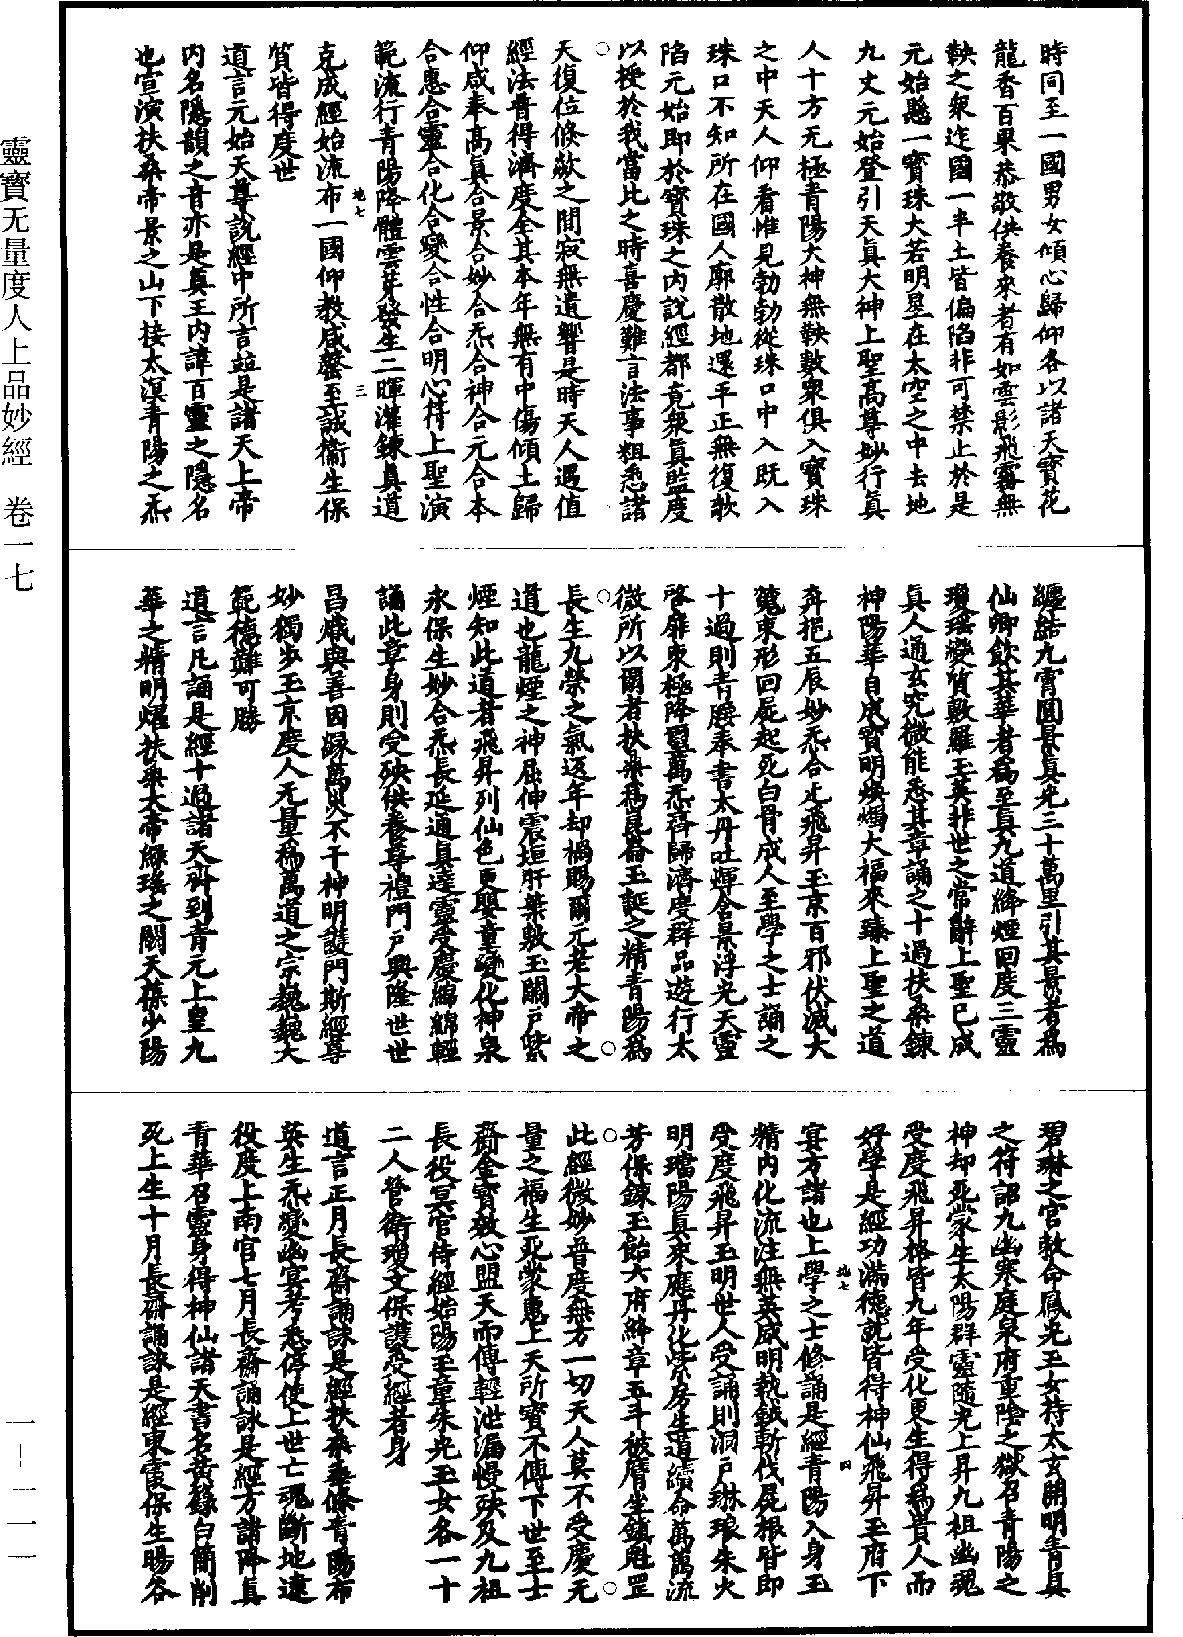 靈寶无量度人上品妙經　卷一七
一－一一一
時同至一國男女傾心歸仰各以諸天寶花
龍香百果恭敬供養來者有如雲影飛霧無
鞅之衆迮國一半土皆偏陷非可禁止於是
元始懸一寶珠大若明星在太空之中去地
九丈元始登引天真大神上聖高尊妙行真
人十方无極青陽大神無鞅數衆俱入寶珠
之中天人仰看惟見勃勃從珠口中入既入
珠口不知所在國人廓散地還平正無復欹
陷元始即於寶珠之內說經都竟衆真監度
以授於我當此之時喜慶難言法事粗悉諸
天復位倏歘之間寂無遺響是時天人遇值
經法普得濟度全其本年無有中傷傾土歸
仰咸奉高真合景合妙合炁合神合元合本
合惠合靈合化合變合性合明心特上聖演
範流行青陽降體雲芽發生二暉灌鍊真道
地七　三
克成經始流布一國仰教咸罄至誠衞生保
質皆得度世
道言元始天尊說經中所言並是諸天上帝
內名隱韻之音亦是真王內諱百靈之隱名
也宣演扶桑帝景之山下接太溟青陽之炁
纏結九霄圓景真光三十萬里引其景者爲
仙卿飲其華者爲至真九道絳煙回度三靈
瓊瑤變質敷羅玉英非世之常辭上聖已成
真人通玄究微能悉其章誦之十過扶桑鍊
神陽華自成寶明煥燭大福來臻上聖之道
奔挹五辰妙炁合疋飛昇玉京百邪伏滅大
蒐東形回屍起死白骨成人至學之士誦之
十過則青腰奉書太丹吐輝含景浮光天靈
啓扉東極降靈萬炁齊歸濟度群品遊行太
微所以爾者扶桑爲崑崙玉誕之精青陽爲
長生九榮之氣返年却禍賜爾元老大帝之
道也龍煙之神屈伸震垣肝葉敷玉關戶紫
煙知此道者飛昇列仙色更嬰童變化神泉
永保生妙合炁長延通真達靈受慶綿綿輕
誦此章身則受殃供養尊禮門戶興隆世世
昌熾與善因緣萬災不干神明護門斯經尊
妙獨步玉京度人无量爲萬道之宗巍巍大
範德難可勝
道言凡誦是經十過諸天齊到青元上皇九
華之精明燿扶桑大帝綠瑤之闕天葆少陽
碧琳之官敕命鳳光玉女持太玄開明青真
之符詔九幽寒庭泉府重陰之獄召青陽之
神却死蒙生太陽群靈隨光上昇九祖幽魂
受度飛昇格皆九年受化更生得爲貴人而
好學是經功滿德就皆得神仙飛昇玉府下
地七　四
宴方諸也上學之士修誦是經青陽入身玉
精內化流注無英威明執鉞斬伐屍根皆即
受度飛昇玉明世人受誦則洞戶琳琅朱火
明璫陽真束應丹化紫房生道續命萬萬流
芳保鍊玉飴六府絳章五斗被膺坐鎮魁罡
此經微妙普度無方一切天人莫不受慶无
量之福生死蒙惠上天所寶不傳下世至士
齎金寶效心盟天而傳輕泄漏慢殃及九祖
長役冥官侍經始陽玉童朱光玉女各一十
二人營衛瓊文保護受經者身
道言正月長齋誦詠是經扶桑垂條青陽布
英生炁變幽冥考悉停使上世亡魂斷地逮
役度上南宮七月長齋誦詠是經方諸降真
青華召靈身得神仙諸天書名黃籙白簡削
死上生十月長齋誦詠是經東霞保生暘谷